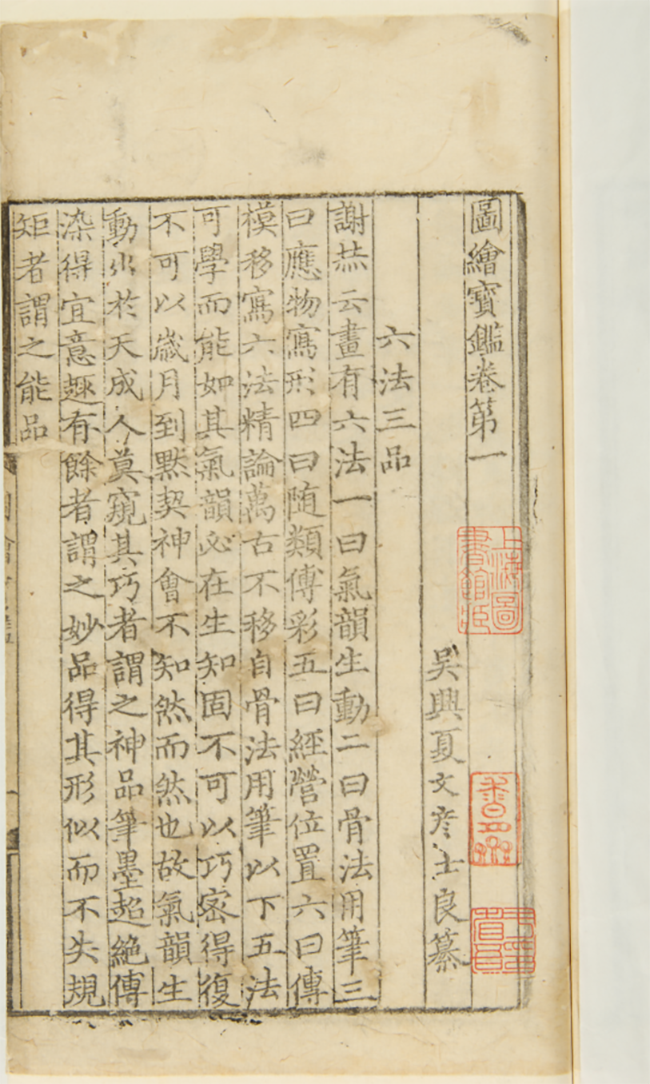 圖繪寶鑑卷第一
吳興夏文彥士良纂
六法三品
謝赫云畫有六法一曰氣韻生動二曰骨法用筆三
曰應物寫形四曰随類傅彩五曰經營位置六曰傳
模移寫六法精論萬古不移自骨法用筆以下五法
可學而能如其氣韻必在生知固不可以巧密得復
不可以歲月到默契神會不知然而然也故氣韻生
動出於天成人莫窺其巧者謂之神品筆墨超絶傳
染得宜意趣有餘者謂之妙品得其形似而不失規
矩者謂之能品
上海圖
書館藏